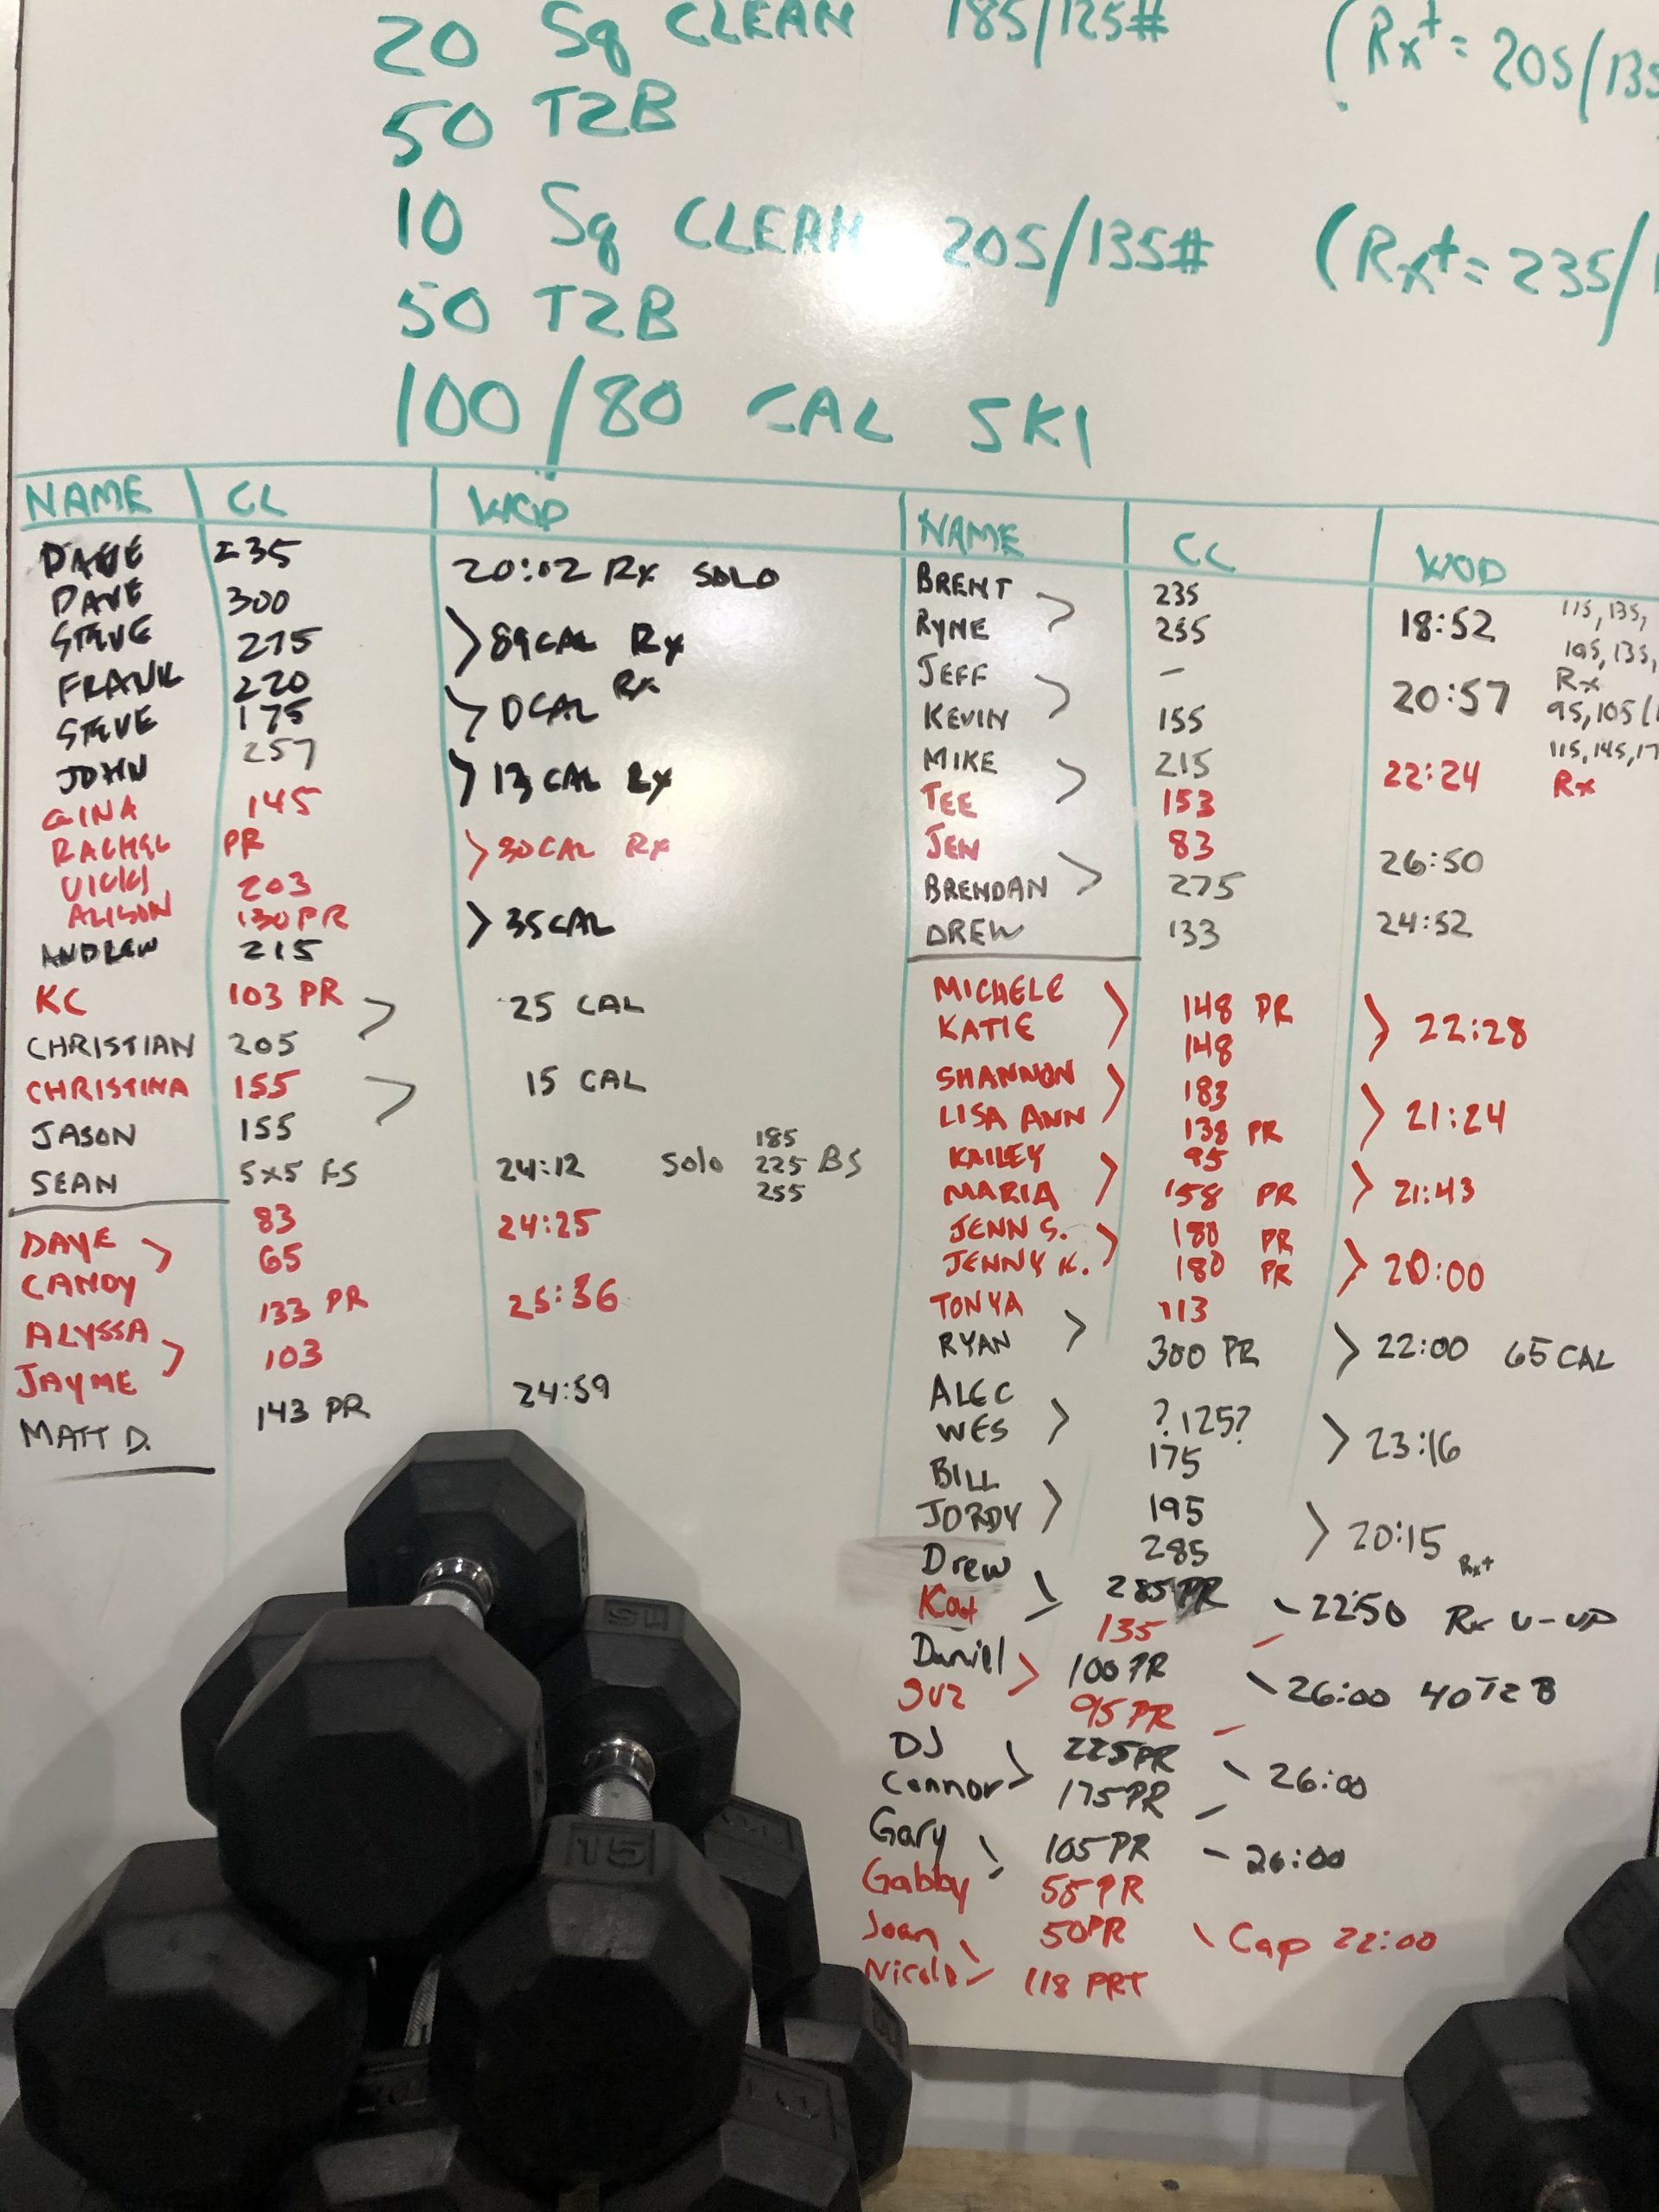 20 Sq CLEAN 185/125# (Rx+ = 205/135
50 T2B
10 Sq CLEAN 205/135# (Rx+ = 235/
50 T2B
100/80 CAL SKI
NAME CL WOD
DAVE 235 20:02 Rx SOLO
DAVE 300
STEVE 275 > 89 CAL Rx
FRANK 220
STEVE 175 > 0 CAL Rx
JOHN 257 > 13 CAL Rx
GINA 145
RACHEL PR > 80 CAL Rx
VICKI 203
ALISON 130 PR > 35 CAL
ANDREW 215
KC 103 PR > 25 CAL
CHRISTIAN 205
CHRISTINA 155 > 15 CAL
JASON 155
SEAN 5x5 FS 24:12 Solo 185 225 255 BS
DAYE > 83 24:25
CANDY 65
ALYSSA > 133 PR 25:36
JAYME 103
MATT D. 143 PR 24:59
NAME CL WOD
BRENT > 235 18:52 115, 135,
RYNE 255 105, 135,
JEFF > - 20:57 Rx
KEVIN 155 95, 105
MIKE > 215 22:24 115, 145, 17
TEE 153 Rx
JEN > 83 26:50
BRENDAN 275
DREW 133 24:52
MICHELE > 148 PR > 22:28
KATIE 148
SHANNON > 183 > 21:24
LISA ANN 138 PR
KAILEY > 95 > 21:43
MARIA 158 PR
JENN S. > 180 PR > 20:00
JENNY K. 180 PR
TONYA > 113
RYAN 300 PR > 22:00 65 CAL
ALEC > ? 125? > 23:16
WES 175
BILL > 195 > 20:15 Rx+
JORDY 285
Drew > 285 PR 22:50 Rx U-UP
Kat 135
Daniel > 100 PR 26:00 40 T2B
Suz 95 PR
DJ > 225 PR 26:00
Connor 175 PR
Gary 105 PR - 26:00
Gabby 55 PR
Joan 50 PR Cap 22:00
Nicole 118 PR
15
15